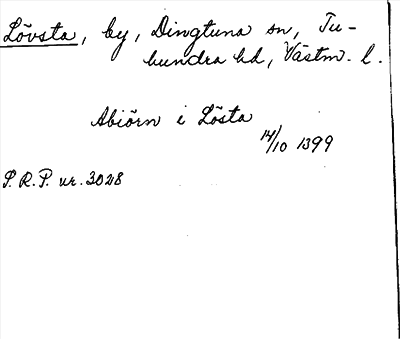 Lövsta, by, Dingtuna sn, Tu-
hundra hd, Västm. l.
Abiörn i Lösta
14/10 1399
S.R.P. nr. 3028